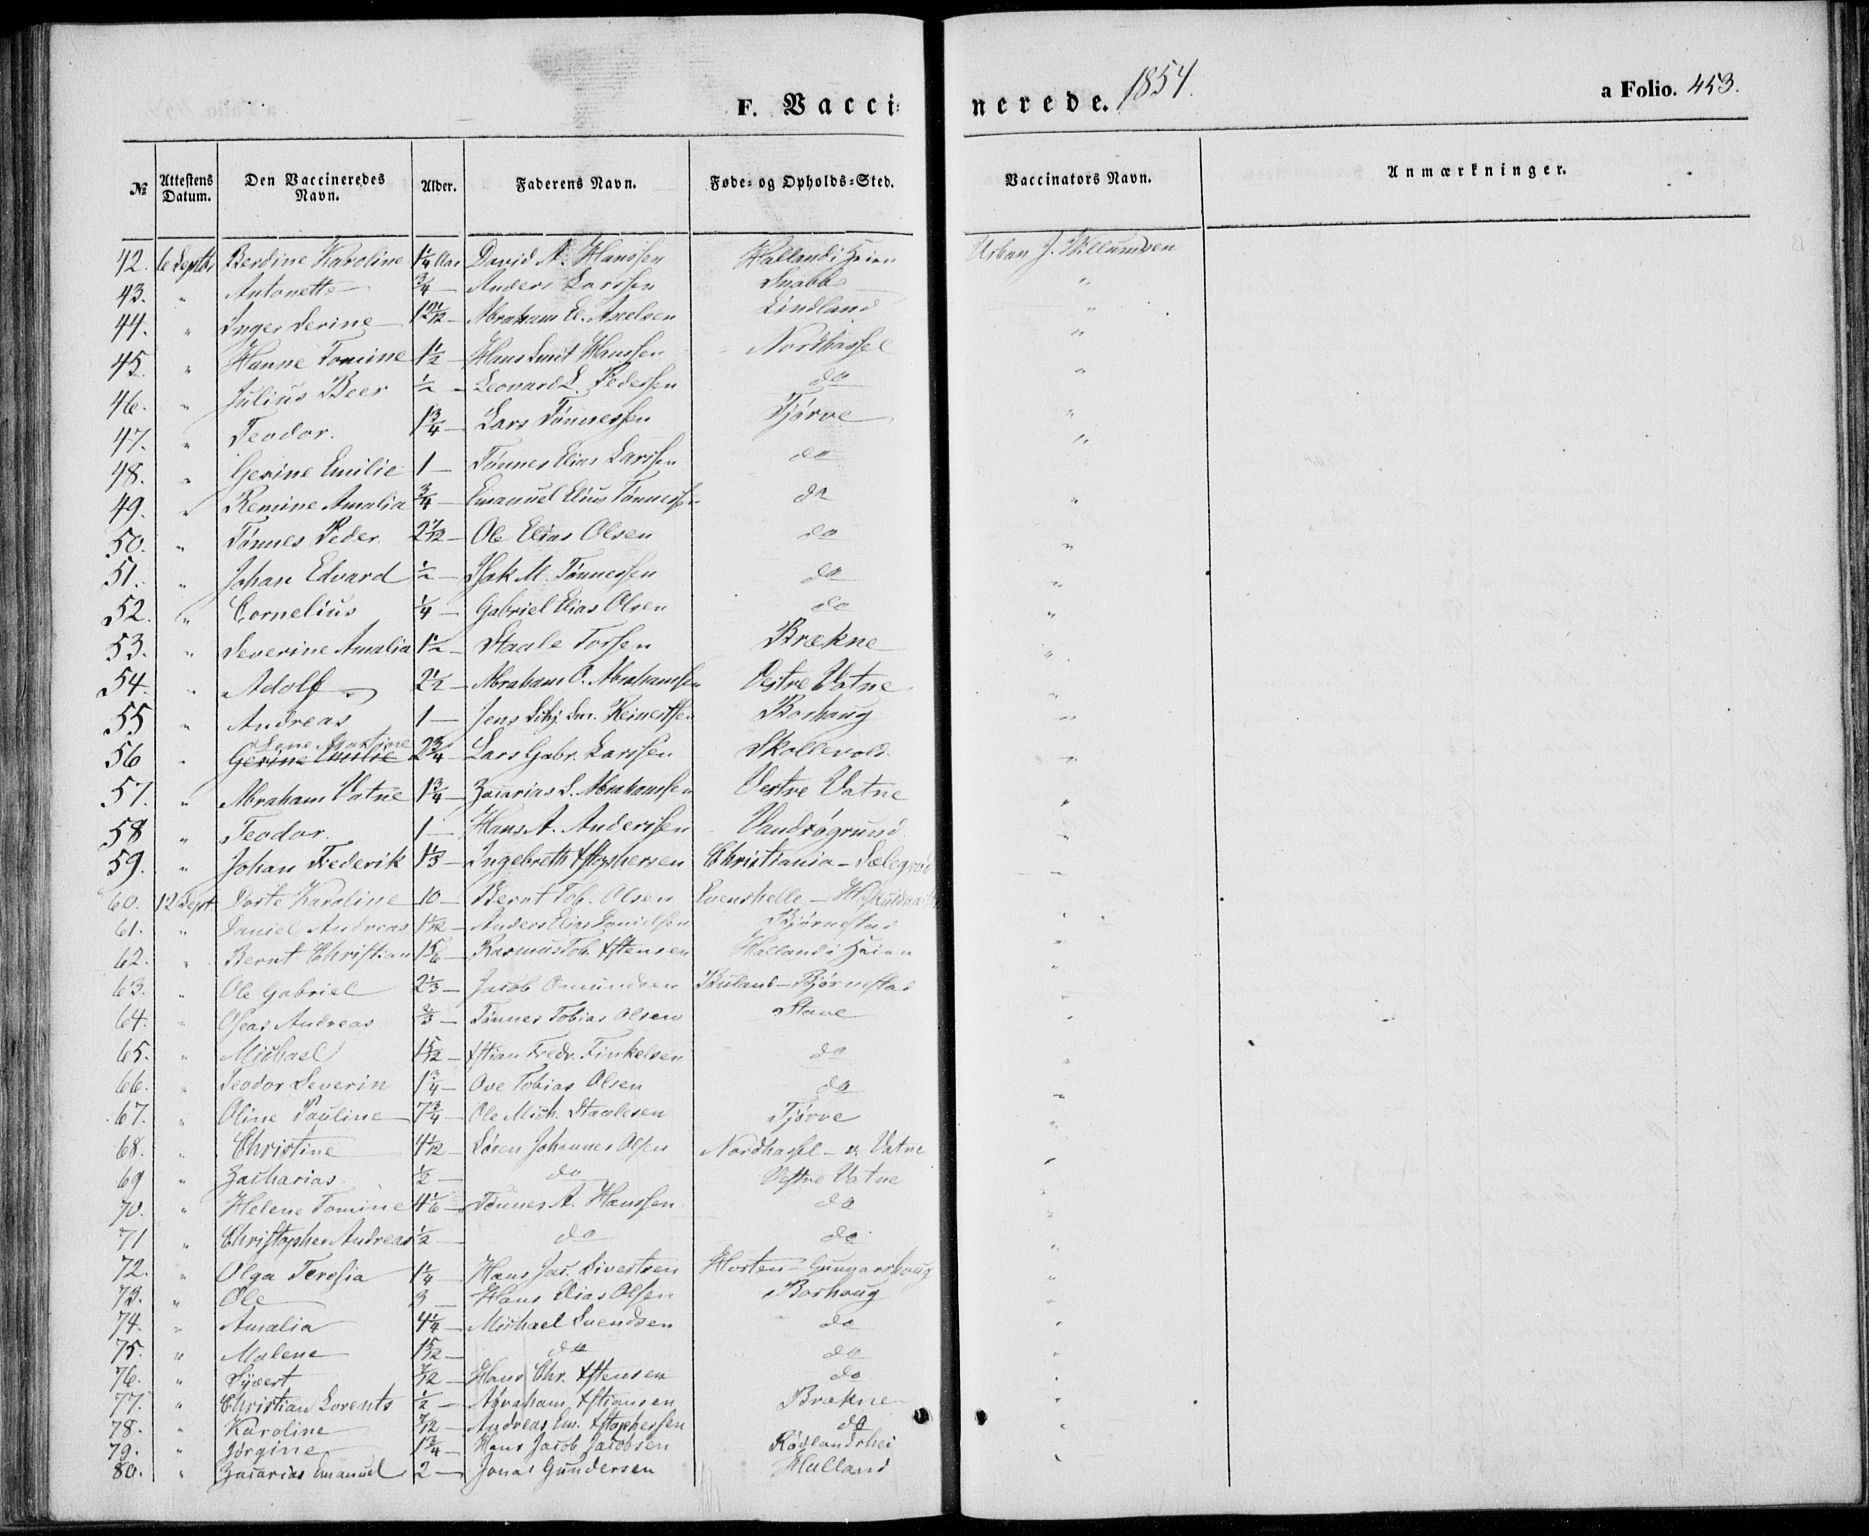 F. Vacci=nerede. 1854. a Folio. 453.
№ | Attestens Datum. | Den Vaccineredes Navn. | Alder. | Faderens Navn. | Føde= og Opholds=Sted. | Vaccinators Navn. | Anmærkninger.
42. 6 Septbr Berdine Karoline 1 1/4 Aar David A. Hanssen Halland i Heien Urban J. Villumsen
43. " Antonette 3/4 — Anders Larssen Snabbe "
44. " Inger Serine — Abraham El. Axelsen Lindland "
45. " Hanne Tomine 1 1/2 — Hans Smit Hanssen Nordhassel "
46. " Julius Beer 1/2 — Leonard L. Pedersen do "
47. " Teodor. 1 3/4 — Lars Tønnessen Tjørve "
48. " Gerine Emilie 1 — Tønnes Elias Larssen do "
49. " Remine Amalia 3/4 — Emanuel Elius Tønnessen do "
50. " Tønnes Peder 2 7/12 — Ole Elias Olsen do "
51. " Johan Edvard 1/2 — Isak M. Tønnessen do "
52. " Cornelius 1/4 — Gabriel Elias Olsen do "
53. " Severine Amalia 1 1/2 — Staale Torsen Brækne "
54. " Adolf 2 1/2 — Abraham O. Abrahamsen Vestre Vatne "
55 " Andreas 1 — Jens Em. Reinertsen Borhaug "
56 " Gerine Emilie Lene Martine 2 3/4 — Lars Gabr. Larssen Skollevold. "
57. " Abraham Vatne 1 3/4 — Zacarias S. Abrahamsen Vestre Vatne "
58 " Teodor. 1 — Hans A. Anderssen Vandrøgrund. "
59. " Johan Frederik 1 1/3 — Ingebreth Xstophersen Christiania — "
60. 12 Sept. Dorte Karoline 10 — Bernt Tob. Olsen
61. " Daniel Andreas 1 1/12 — Anders Elias Danielsen Bjørnestad "
62. " Bernt Christian 1 5/6 — Rasmus Tob. Xstensen Halland i Heien "
63. " Ole Gabriel 2 1/3 — Jacob Omundsen Buland — Bjørnestad "
64. " Oseas Andreas 2/3 — Tønnes Tobias Olsen Stave "
65. " Michael 1 5/12 — Xstian Fredr. Finkelsen do "
66. " Teodor Severin 1 3/4 — Ove Tobias Olsen do "
67. " Oline Pauline 7 3/4 — Ole Mich. Staalesen Tjørve "
68. " Christine 4 1/12 — Søren Johannes Olsen Nordhassel — v. Vatne "
69 " Zacharias 1/2 — do Vestre Vatne "
70. " Helene Tomine 4 1/6 — Tønnes A. Hanssen do "
71 " Christopher Andreas 1/2 — do do "
72. " Olga Teresia 1 1/4 — Hans Jac. Sivertsen Horten — Gunnarshaug "
73. " Ole 3 — Hans Elias Olsen Borhaug "
74. " Amalia 4 1/4 — Michael Svendsen do "
75. " Malene 1 5/12 — do do "
76. " Syvert — Hans Chr. Xstensen do "
77. " Christian Lorents 1/2 — Abraham Xstiansen Brækne "
78. " Karoline 7/12 — Andreas Em. Xstophersen do "
79. " Jørgine 1 3/4 — Hans Jacob Jacobsen Rødlandshei "
80. " Zacarias Emanuel 2 — Jonas Gundersen Halland